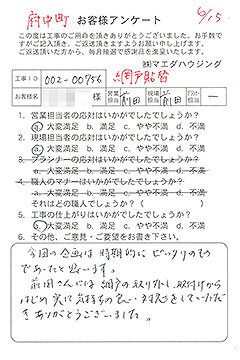 府中町 お客様アンケート 6/15
この度は工事のご用命を頂きありがとうございました。お手数で
すがご記入頂き、ご返送頂きますようお願い申し上げます。
ご返送頂いた方から、毎月抽選で感謝品を進呈いたします。
㈱マエダハウジング
工事ID 002-00756 網戸貼替
お客様名 様 営業担当 前田 現場担当 前田 プリント担当 ー
1. 営業担当者の応対はいかがでしたでしょうか?
a.大変満足 b.満足 c.やや不満 d.不満
2. 現場担当者の応対はいかがでしたでしょうか?
a.大変満足 b.満足 c.やや不満 d.不満
3. プランナーの応対はいかがでしたでしょうか?
a.大変満足 b.満足 c.やや不満 d.不満
4. 職人のマナーはいかがでしたでしょうか?
a.大変満足 b.満足 c.やや不満 d.不満
それはどの職人でしょうか?( )
5. 工事の仕上がりはいかがでしたでしょうか?
a.大変満足 b.満足 c.やや不満 d.不満
6. その他、ご意見・ご要望をお書き下さい。
今回の企画は時期的にピッタリのもの
であったと思います。
前田さんには網戸の取り外し、取付けから
はじめ実に気持ちの良い対応をしていただ
きありがとうございました。